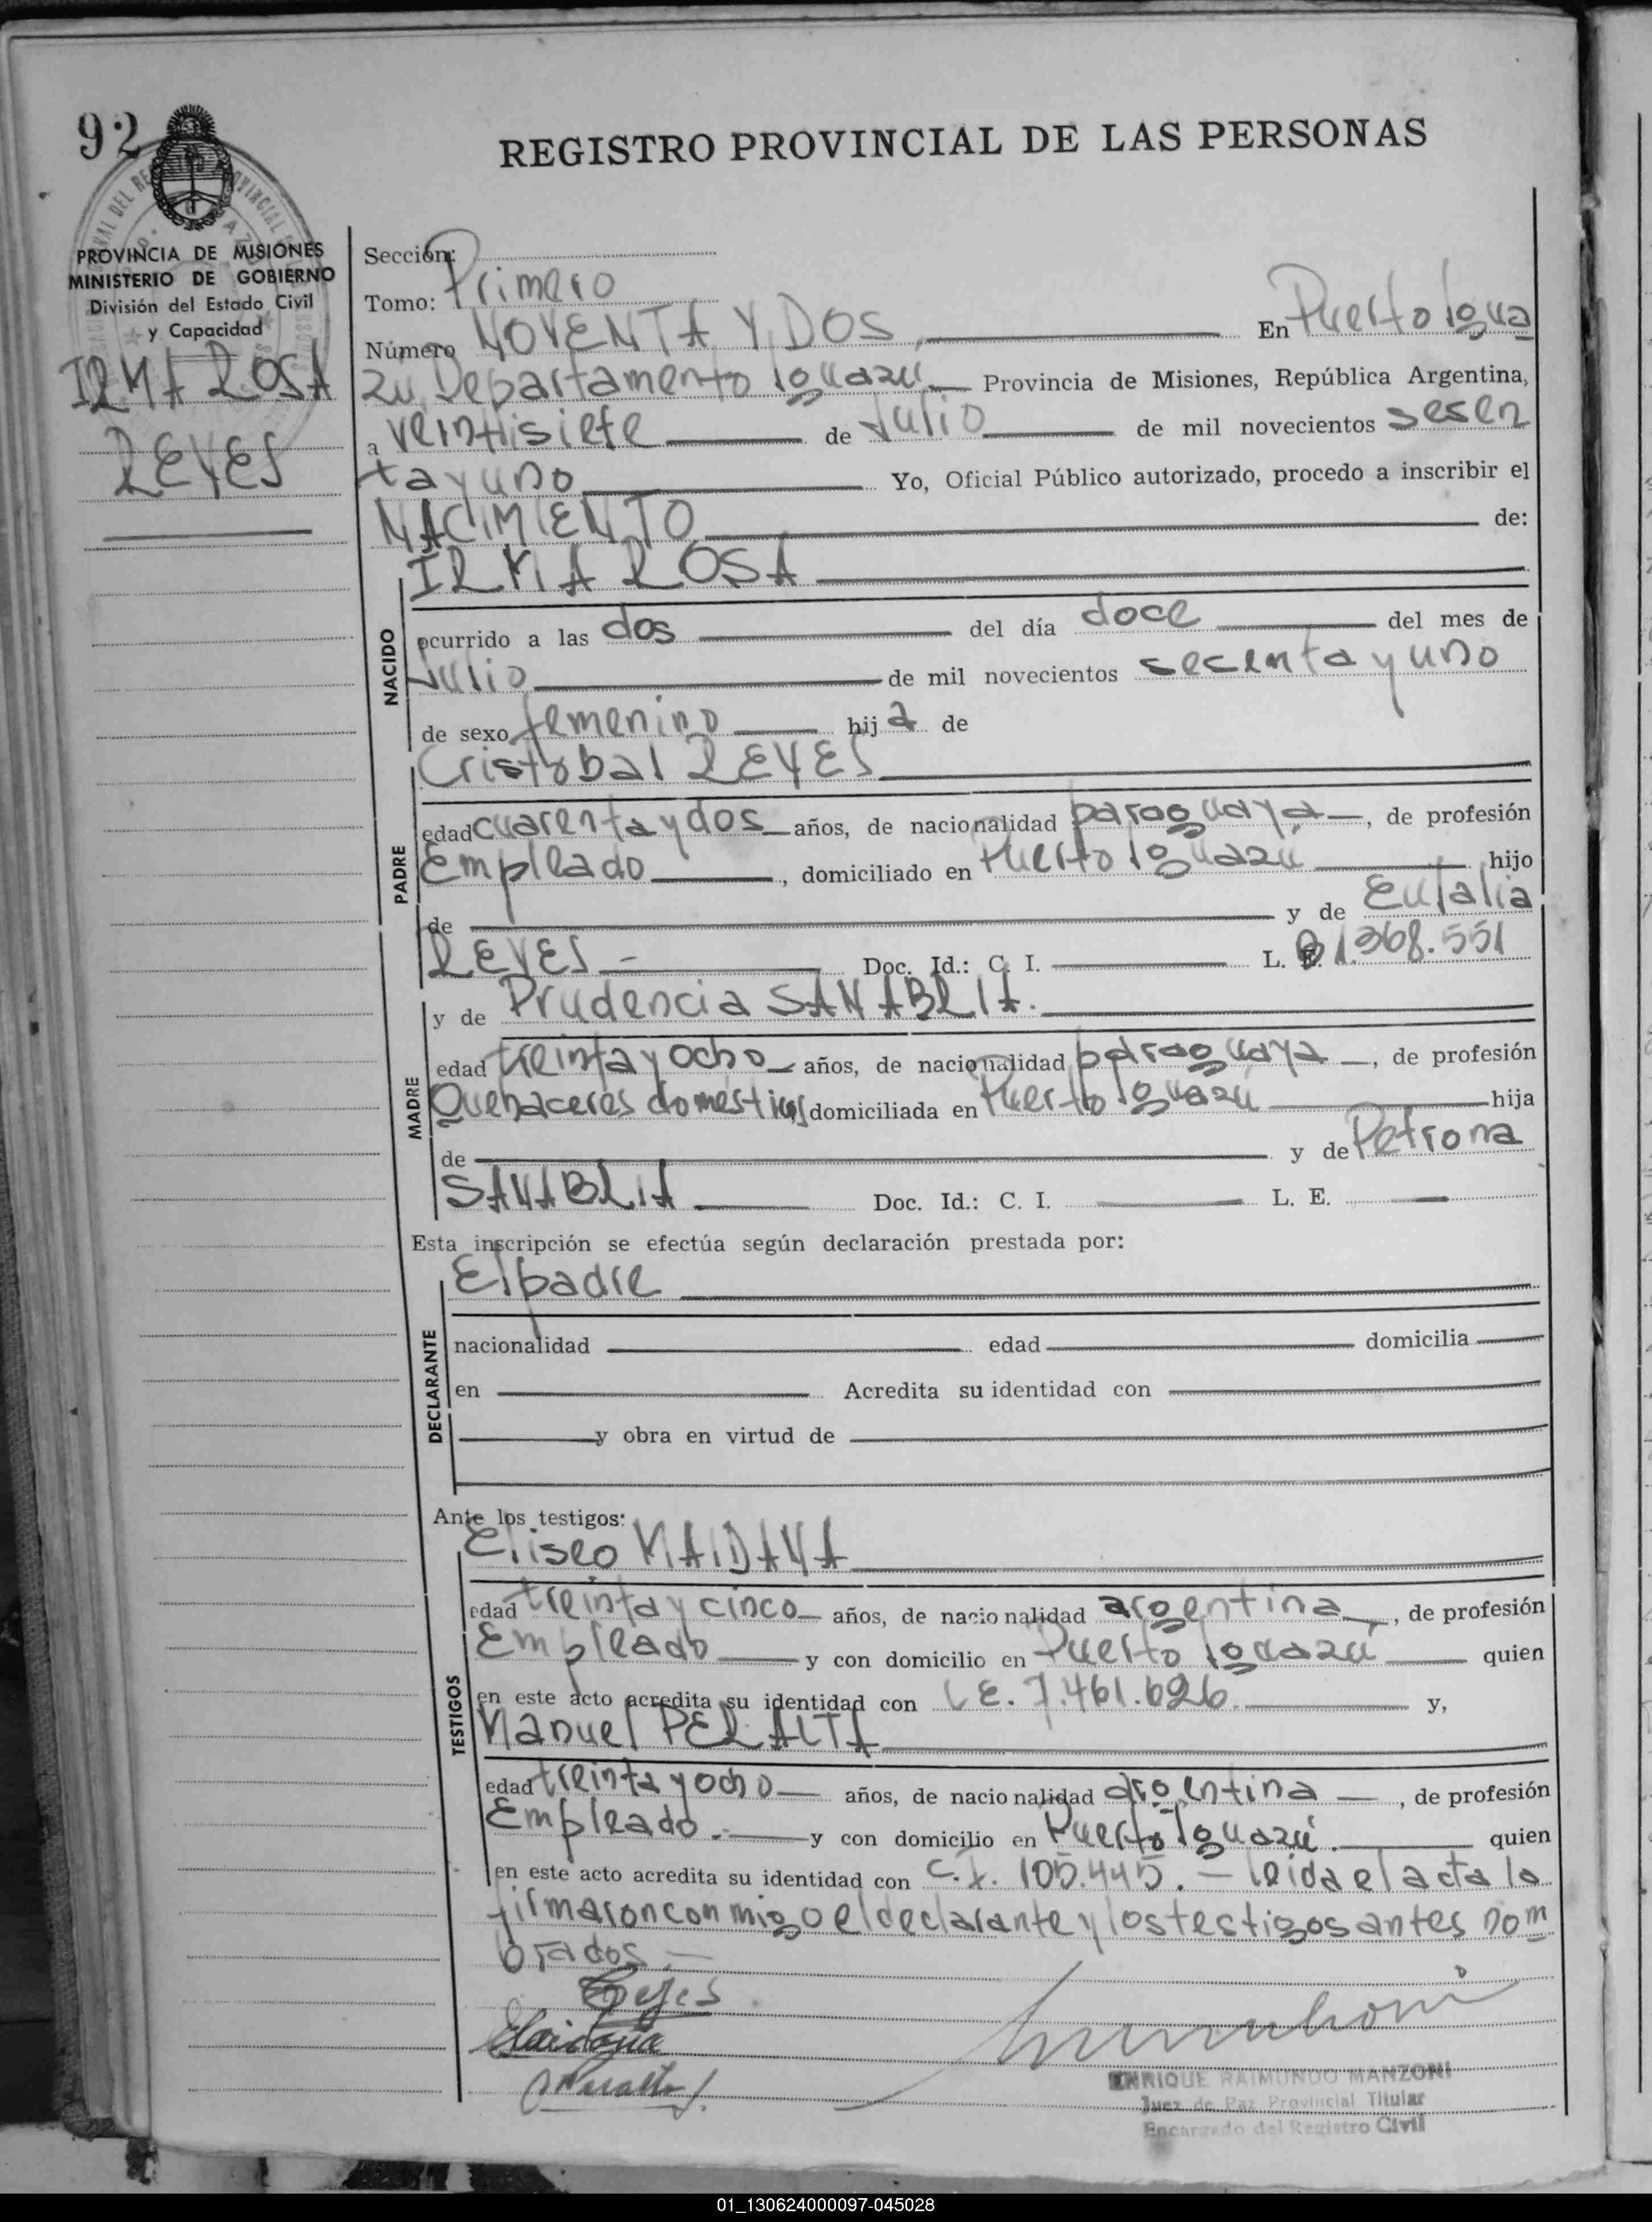 92
REGISTRO PROVINCIAL DE LAS PERSONAS
PROVINCIA DE MISIONES
MINISTERIO DE GOBIERNO
División del Estado Civil
y Capacidad
IRMA ROSA
REYES
Sección:
Tomo: Primero
Número NOVENTA Y DOS, En Puerto Igua
zú, Departamento Iguazú Provincia de Misiones, República Argentina,
a veintisiete de Julio de mil novecientos sesen
ta y uno Yo, Oficial Público autorizado, procedo a inscribir el
NACIMIENTO de:
NACIDO
IRMA ROSA
ocurrido a las dos del día doce del mes de
Julio de mil novecientos secenta y uno
de sexo femenino hija de
PADRE
Cristobal REYES
edad cuarenta y dos años, de nacionalidad paraguaya, de profesión
Empleado, domiciliado en Puerto Iguazú hijo
de y de Eulalia
REYES Doc. Id.: C. I. L. E. 1.368.551
MADRE
y de Prudencia SANABRIA.
edad treinta y ocho años, de nacionalidad paraguaya, de profesión
Quehaceres domésticos domiciliada en Puerto Iguazú hija
de y de Petrona
SANABRIA Doc. Id.: C. I. L. E.
Esta inscripción se efectúa según declaración prestada por:
DECLARANTE
El padre
nacionalidad edad domicilia
en Acredita su identidad con
y obra en virtud de
Ante los testigos:
TESTIGOS
Eliseo MAIDANA
edad treinta y cinco años, de nacionalidad argentina, de profesión
Empleado y con domicilio en Puerto Iguazú quien
en este acto acredita su identidad con L.E. 7.461.626. y,
Manuel PERALTA
edad treinta y ocho años, de nacionalidad argentina, de profesión
Empleado.- y con domicilio en Puerto Iguazú. quien
en este acto acredita su identidad con C.I. 105.445. - leida el acta la
firmaron conmigo el declarante y los testigos antes nom
brados.-
Reyes
EMaidana
MPeralta
ENRIQUE RAIMUNDO MANZONI
Juez de Paz Provincial Titular
Encargado del Registro Civil
01_130624000097-045028